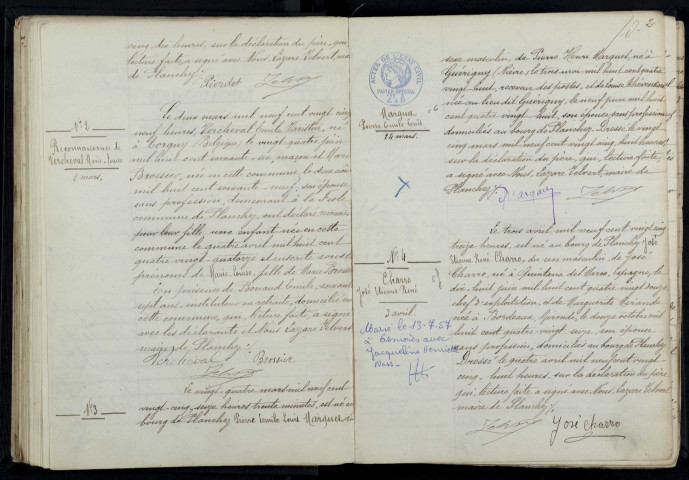 cinq, dix heures, sur la déclaration du père, qui,
lecture faite, a signé avec Nous, Lazare Velvert, maire
de Planchez.
Pierdet
N° 2
Reconnaissance de
Percheval Marie-Louise
2 mars.
Le deux mars mil neuf cent vingt cinq
neuf heures, Percheval Emile Varistin, né
à Torgny (Belgique) le vingt quatre juin
mil huit cent soixante-six, maçon et Marie
Brossier, née en cette commune le deux août
mil huit cent soixante-neuf, son épouse
sans profession, demeurant à la Fiole
commune de Planchez, ont déclaré reconnaître
pour leur fille, une enfant née en cette
commune le quatre avril mil huit cent
quatre vingt-quatorze et inscrite sous les
prénoms de Marie-Louise, fille de Marie Brossier
En présence de Bonaud Emile, soixante
sept ans, instituteur en retraite, domicilié en
cette commune, qui, lecture faite, a signé
avec les déclarants et Nous Lazare Velvert
maire de Planchez.
Percheval Brossier
N° 3
Le vingt-quatre mars mil neuf cent
vingt-cinq, seize heures trente minutes, est né au
bourg de Planchez Pierre Emile Louis Marquet, du
2
ACTES DE L'ETAT CIVIL
PAPIER SPECIAL
Marquet
Pierre Emile Louis
24 mars.
sexe masculin, de Pierre Henri Marquet, né à
Guérigny (Nièvre) le trois mai mil huit cent quatre
vingt huit, receveur des postes, et de Louise
née au lieu dit Guérigny, le neuf juin mil huit
cent quatre vingt huit, son épouse, sans profession
domiciliés au bourg de Planchez. Dressé le vingt
cinq mars mil neuf cent vingt cinq, huit heures
sur la déclaration du père, qui, lecture faite,
a signé avec Nous, Lazare Velvert, maire de
Planchez.
Marquet
N° 4
Charro
José Etienne René
3 avril.
Marié le 13-7-57
à Asnières avec
Jacqueline Henriette
Le trois avril mil neuf cent vingt cinq
treize heures, est né au bourg de Planchez José
Etienne René Charro, du sexe masculin de José
Charro, né à Quintana del Marco, Espagne, le
dix-huit juin mil huit cent quatre vingt douze
chef d'exploitation, et de Marguerite Mirande
née à Bordeaux, Gironde, le douze octobre mil
huit cent quatre-vingt seize, son épouse
sans profession, domiciliés au bourg de Planchez
Dressé le quatre avril mil neuf cent vingt-
cinq, huit heures, sur la déclaration du père
qui, lecture faite a signé avec Nous, Lazare Velvert
maire de Planchez.
José Charro